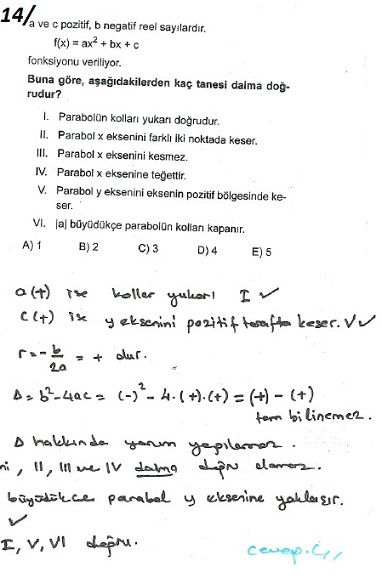 14/
a ve c pozitif, b negatif reel sayılardır.
f(x) = ax² + bx + c
fonksiyonu veriliyor.
Buna göre, aşağıdakilerden kaç tanesi daima doğ-
rudur?
I. Parabolün kolları yukarı doğrudur.
II. Parabol x eksenini farklı iki noktada keser.
III. Parabol x eksenini kesmez.
IV. Parabol x eksenine teğettir.
V. Parabol y eksenini eksenin pozitif bölgesinde ke-
ser.
VI. |a| büyüdükçe parabolün kolları kapanır.
A) 1 B) 2 C) 3 D) 4 E) 5
a(+) ise kollar yukarı I ✓
c(+) ise y eksenini pozitif tarafta keser. V ✓
r = -b/2a = + olur.
Δ = b² - 4ac = (-)² - 4·(+)·(+) = (+) - (+)
tam bilinemez.
Δ hakkında yorum yapılamaz.
ni, II, III ve IV daima doğru olamaz.
büyüdükçe parabol y eksenine yaklaşır.
✓
I, V, VI doğru.
cevap. C